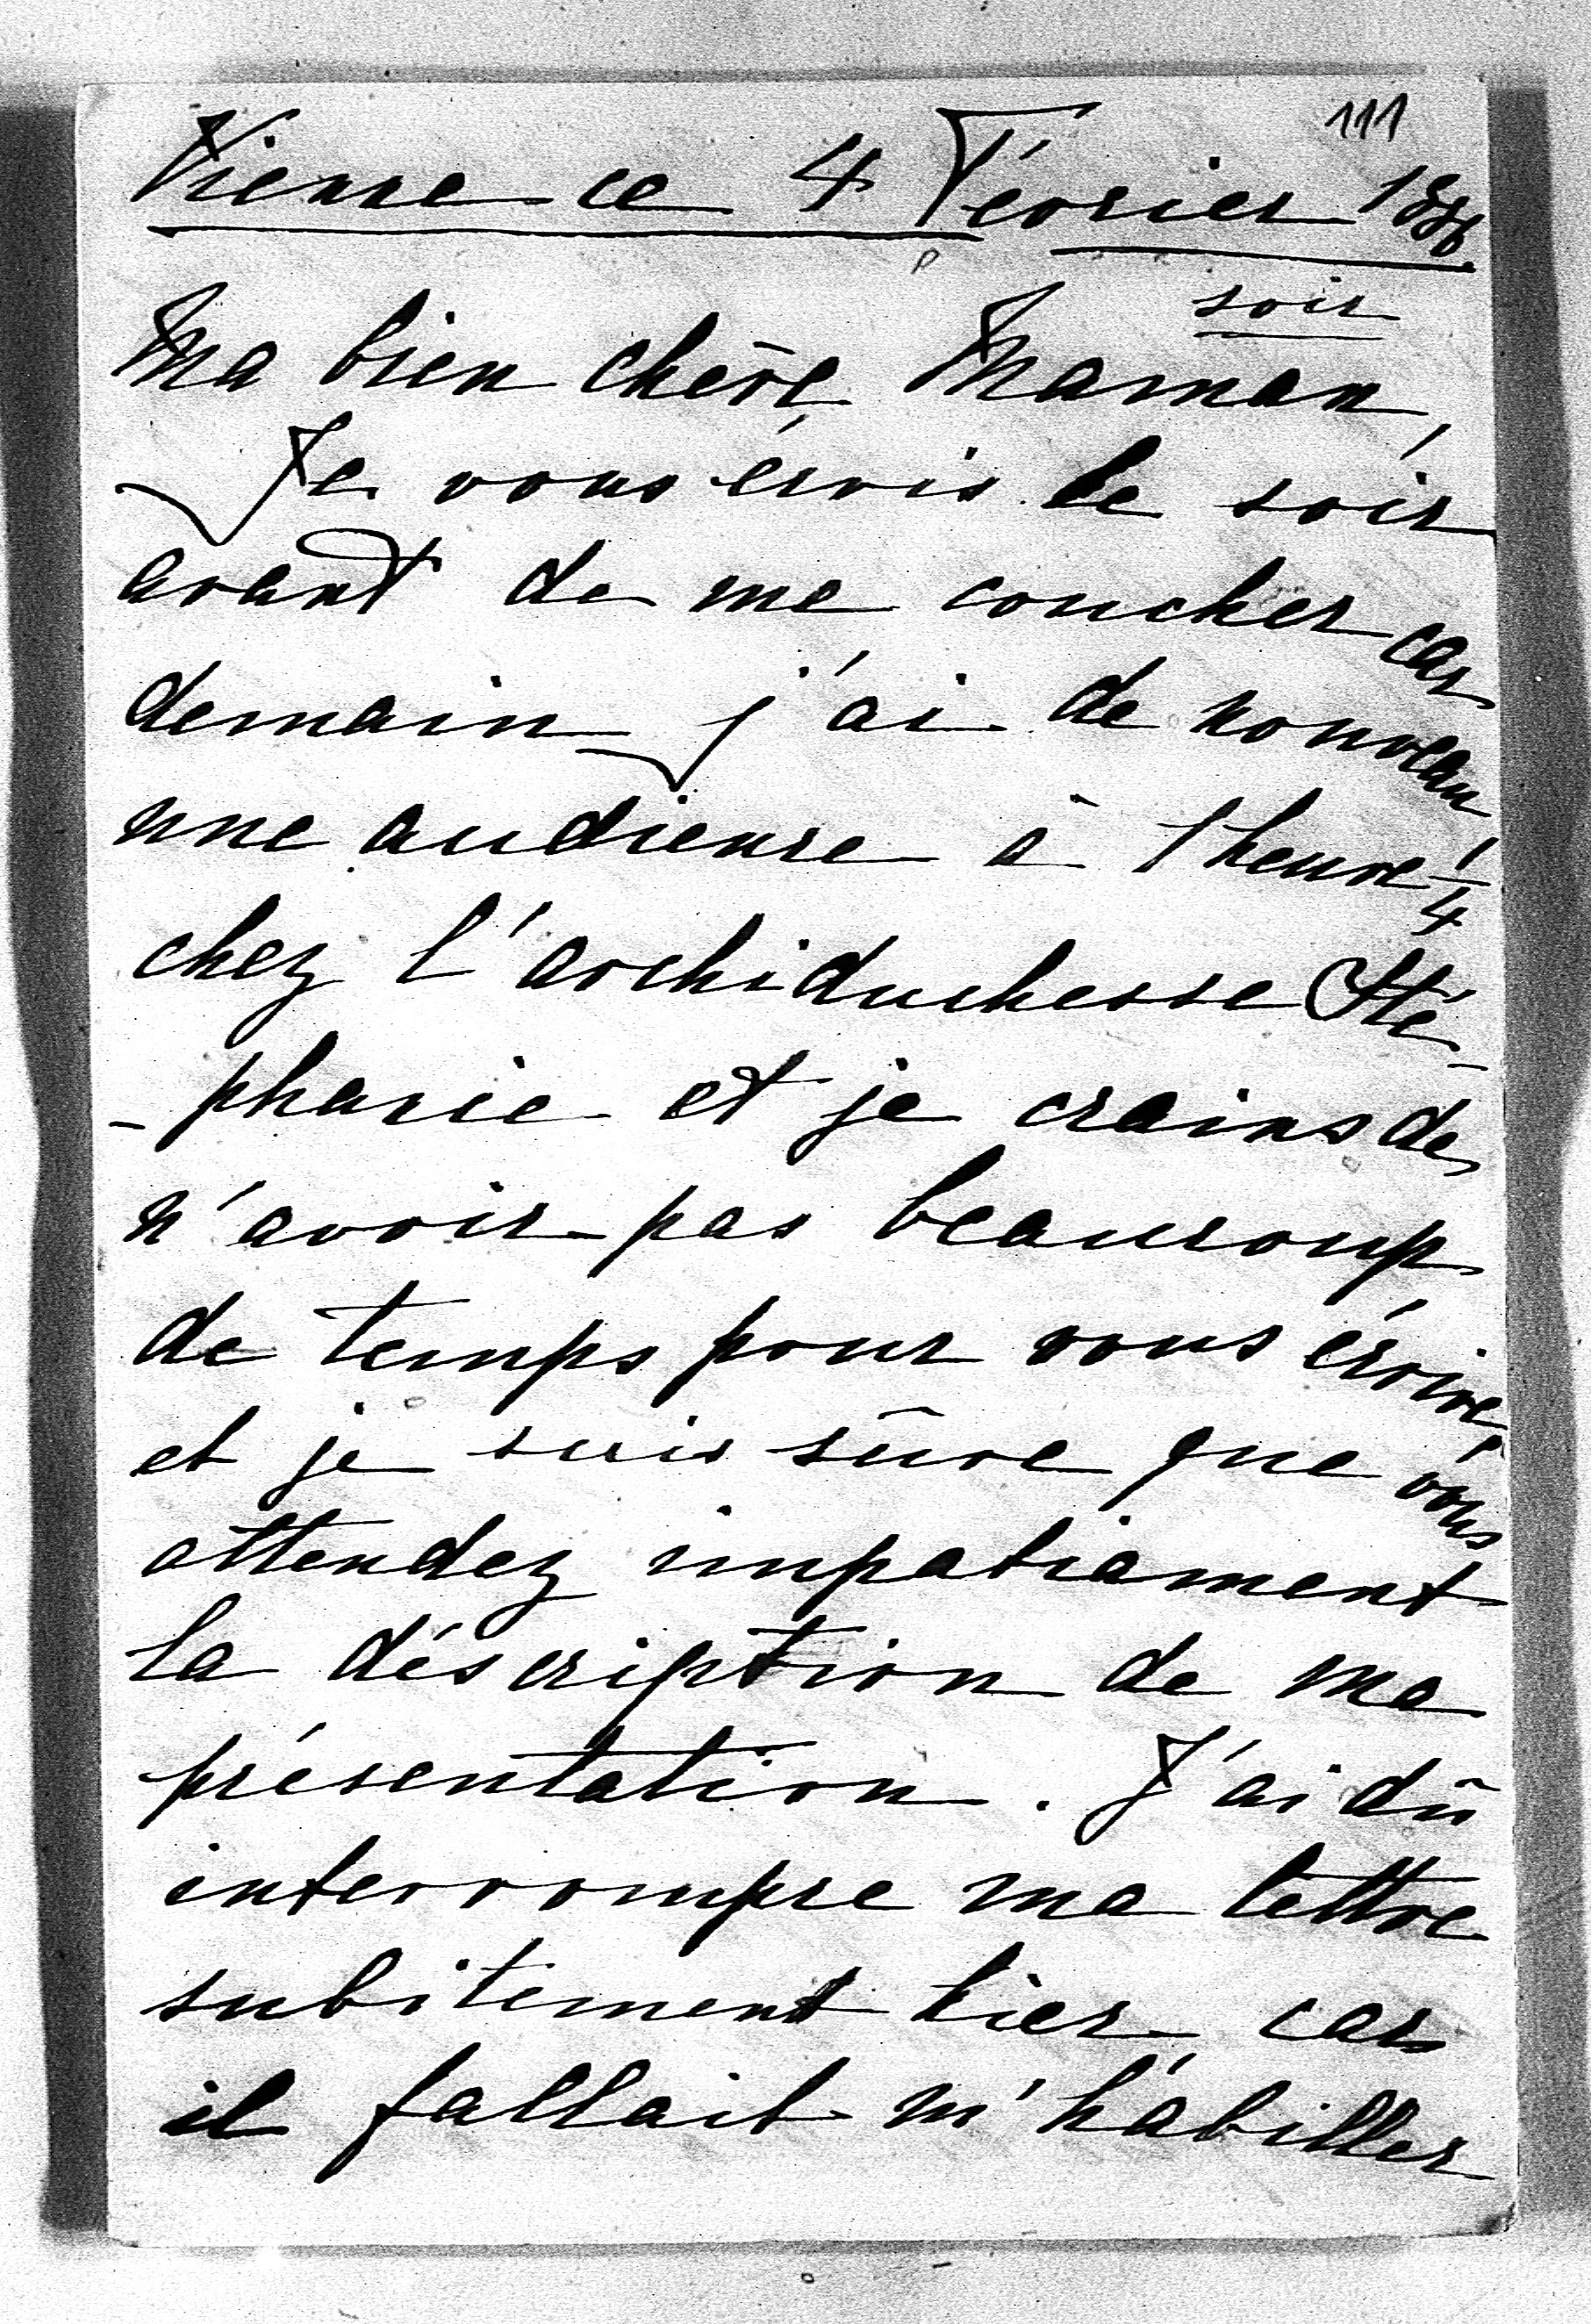 111
Vienne ce 4 Février 1886.
soir
Ma bien chère Maman,
Je vous écris le soir
avant de me coucher car
demain j'ai de nouveau
une audience à 1 heure 1/4
chez l'archiduchesse Sté-
-phanie et je crains de
n'avoir pas beaucoup
de temps pour vous écrire,
et je suis sûre que vous
attendez impatiament
la déscription de ma
présentation. J'ai dû
interrompre ma lettre
subitement hier car
il fallait m'habiller